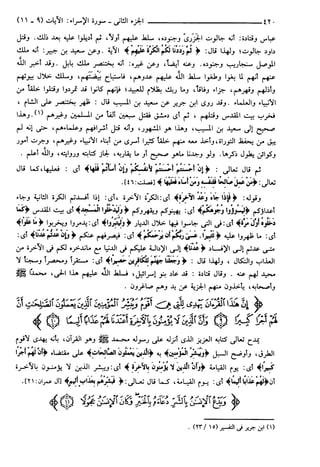 ٤٢٠ الجزء الثاني ـ سورة الإسراء: الآيات (٩ ـ ١١)
عباس وقتادة: أنه جالوت الجزري وجنوده، سلط عليهم أولاً، ثم أديلوا عليه بعد ذلك. وقتل
داود جالوت؛ ولهذا قال: ﴿ثُمَّ رَدَدْنَا لَكُمُ الْكَرَّةَ عَلَيْهِمْ﴾ الآية. وعن سعيد بن جبير: أنه ملك
الموصل سنجاريب وجنوده. وعنه أيضاً، وعن غيره: أنه بختنصر ملك بابل. وقد أخبر الله
عنهم أنهم لما بغوا وطغوا سلط الله عليهم عدوهم، فاستباح بيضتهم، وسلك خلال بيوتهم
وأذلهم وقهرهم، جزاء وفاقاً، وما ربك بظلام للعبيد؛ فإنهم كانوا قد تمردوا وقتلوا خلقاً من
الأنبياء والعلماء. وقد روى ابن جرير عن سعيد بن المسيب قال: ظهر بختنصر على الشام،
فخرب بيت المقدس وقتلهم، ثم أتى دمشق فقتل سبعين ألفاً من المسلمين وغيرهم (١). وهذا
صحيح إلى سعيد بن المسيب، وهذا هو المشهور، وأنه قتل أشرافهم وعلماءهم، حتى إنه لم
يبق من يحفظ التوراة، وأخذ معه منهم خلقاً كثيراً أسرى من أبناء الأنبياء وغيرهم، وجرت أمور
وكوائن يطول ذكرها. ولو وجدنا ماهو صحيح أو ما يقاربه، لجاز كتابته وروايته، والله أعلم.
ثم قال تعالى: ﴿إِنْ أَحْسَنْتُمْ أَحْسَنْتُمْ لِأَنْفُسِكُمْ وَإِنْ أَسَأْتُمْ فَلَهَا﴾ أي: فعليها، كما قال
تعالى: ﴿مَنْ عَمِلَ صَالِحًا فَلِنَفْسِهِ وَمَنْ أَسَاءَ فَعَلَيْهَا﴾ [فصلت: ٤٦].
وقوله: ﴿فَإِذَا جَاءَ وَعْدُ الْآخِرَةِ﴾ أي: الكرة الآخرة، أي: إذا أفسدتم الكرة الثانية وجاء
أعداؤكم ﴿لِيَسُوءُوا وُجُوهَكُمْ﴾ أي: يهينوكم ويقهروكم ﴿وَلِيَدْخُلُوا الْمَسْجِدَ﴾ أي بيت المقدس ﴿كَمَا
دَخَلُوهُ أَوَّلَ مَرَّةٍ﴾ أي: في التي جاسوا فيها خلال الديار ﴿وَلِيُتَبِّرُوا﴾ أي: يدمروا ويخربوا ﴿مَا عَلَوْا﴾
أي: ما ظهروا عليه ﴿تَتْبِيرًا. عَسَى رَبُّكُمْ أَنْ يَرْحَمَكُمْ﴾ أي: فيصرفهم عنكم ﴿وَإِنْ عُدْتُمْ عُدْنَا﴾ أي:
متى عدتم إلى الإفساد ﴿عُدْنَا﴾ إلى الإدالة عليكم في الدنيا مع ماندخره لكم في الآخرة من
العذاب والنكال، ولهذا قال: ﴿وَجَعَلْنَا جَهَنَّمَ لِلْكَافِرِينَ حَصِيرًا﴾ أي: مستقراً ومحصراً وسجناً لا
محيد لهم عنه. وقال قتادة: قد عاد بنو إسرائيل، فسلط الله عليهم هذا الحي، محمد ﷺ
وأصحابه، يأخذون منهم الجزية عن يد وهم صاغرون.
إِنَّ هَذَا الْقُرْآنَ يَهْدِي لِلَّتِي هِيَ أَقْوَمُ وَيُبَشِّرُ الْمُؤْمِنِينَ الَّذِينَ يَعْمَلُونَ الصَّالِحَاتِ أَنَّ
لَهُمْ أَجْرًا كَبِيرًا ﴿٩﴾ وَأَنَّ الَّذِينَ لَا يُؤْمِنُونَ بِالْآخِرَةِ أَعْتَدْنَا لَهُمْ عَذَابًا أَلِيمًا ﴿١٠﴾
يمدح تعالى كتابه العزيز الذي أنزله على رسوله محمد ﷺ وهو القرآن، بأنه يهدي لأقوم
الطرق، وأوضح السبل ﴿وَيُبَشِّرُ الْمُؤْمِنِينَ﴾ به ﴿الَّذِينَ يَعْمَلُونَ الصَّالِحَاتِ﴾ على مقتضاه ﴿أَنَّ لَهُمْ أَجْرًا
كَبِيرًا﴾ أي: يوم القيامة ﴿وَأَنَّ الَّذِينَ لَا يُؤْمِنُونَ بِالْآخِرَةِ﴾ أي: ويبشر الذين لا يؤمنون بالآخرة
أن ﴿لَهُمْ عَذَابًا أَلِيمًا﴾ أي: يوم القيامة، كما قال تعالى: ﴿فَبَشِّرْهُمْ بِعَذَابٍ أَلِيمٍ﴾ [آل عمران: ٢١].
وَيَدْعُ الْإِنْسَانُ بِالشَّرِّ دُعَاءَهُ بِالْخَيْرِ وَكَانَ الْإِنْسَانُ عَجُولًا ﴿١١﴾
(١) ابن جرير في التفسير (١٥ / ٢٣).